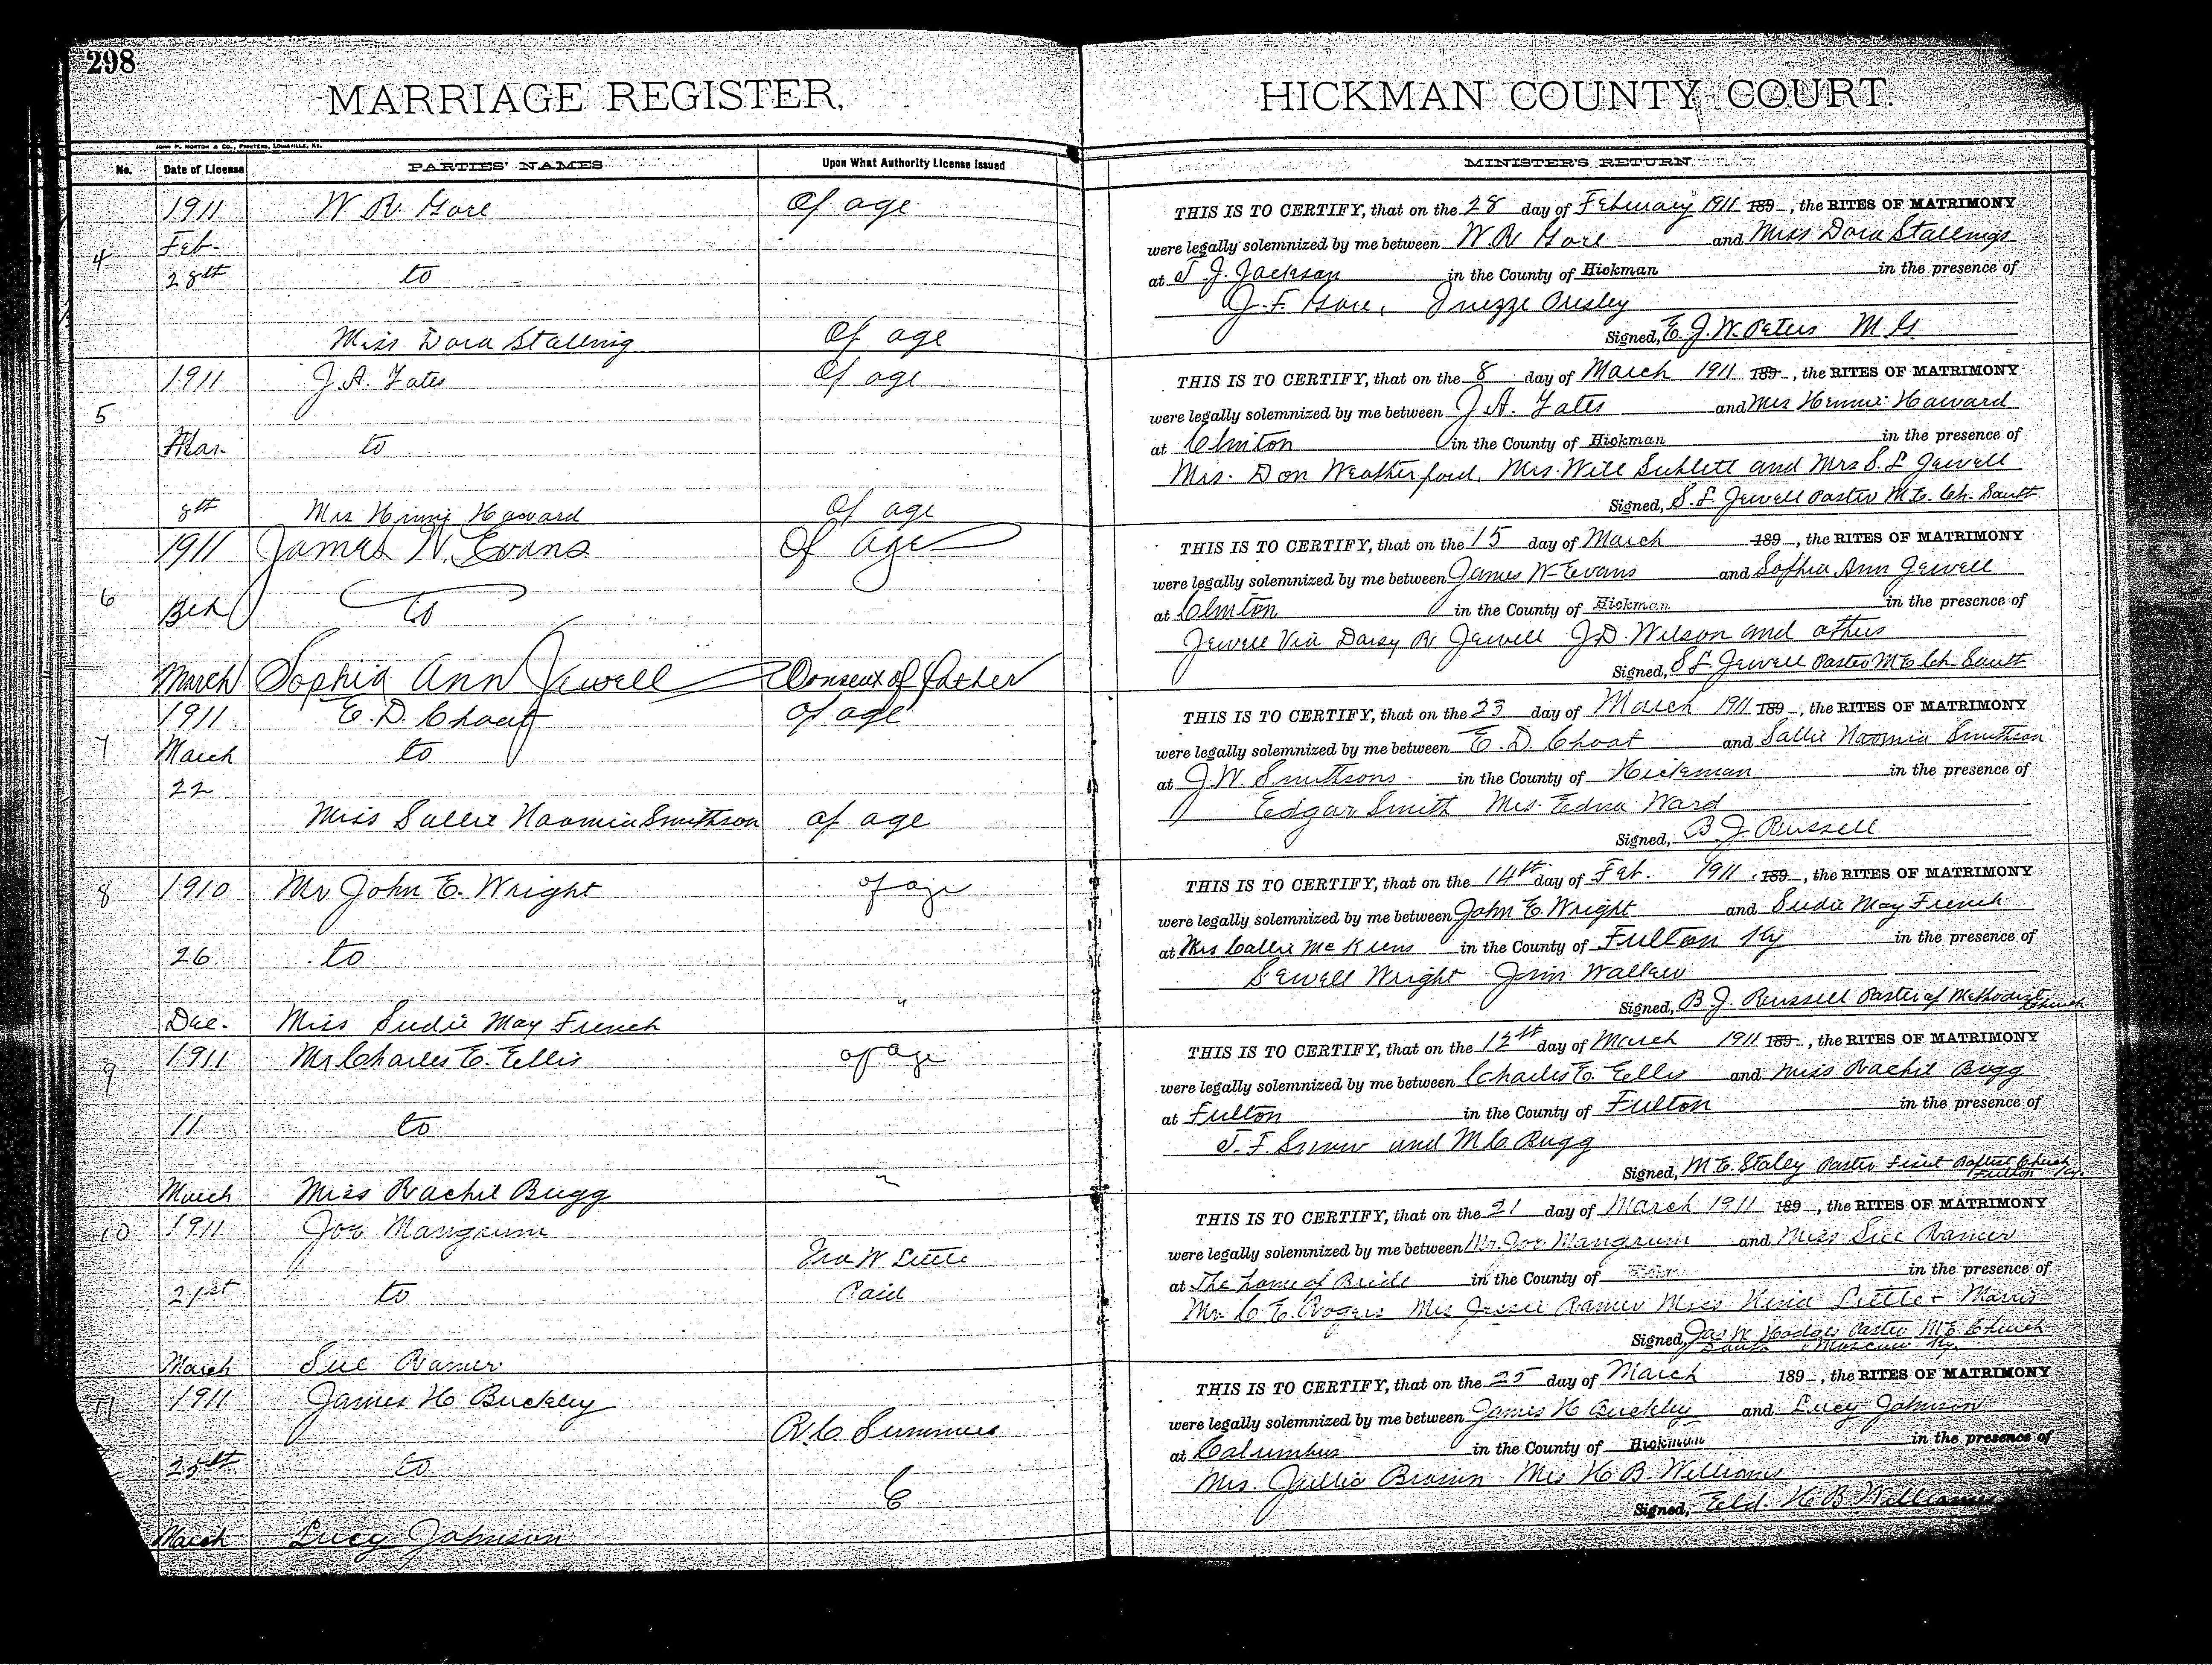 298
MARRIAGE REGISTER,
JOHN P. MORTON & CO., PRINTERS, LOUISVILLE, KY.
No. Date of License PARTIES' NAMES Upon What Authority License issued
1911 W R. Gore Of age
4 Feb-
28th to
Miss Dora Stalling Of age
1911 J. A. Yates Of age
5
Mar. to
8th Mrs Howard Of age
1911 James W. Evans Of Age
6 to
March Sophia Ann Jewell Consent of father
1911 E. D. Choat of age
7 March to
22
Miss Sallie Naomia Smithson of age
8 1910 Mr John E. Wright of age
26 to
Dec. Miss Sudie May French "
9 1911 Mr Charles E. Ellis of age
11 to
March Miss Rachel Bugg "
10 1911 Joe Mangrum
W Little
21st to Paid
March Sue Ramer
11 1911 James H Buckley
R. C Summers
25th to
C
March Lucy Johnson
HICKMAN COUNTY COURT.
MINISTER'S RETURN
THIS IS TO CERTIFY, that on the 28 day of February 1911 189 , the RITES OF MATRIMONY
were legally solemnized by me between W. R Gore and Miss Dora Stallings
at T. J. Jackson in the County of Hickman in the presence of
J. F. Gore, Presley
Signed, E. J. W. Peters M G
THIS IS TO CERTIFY, that on the 8 day of March 1911 189 , the RITES OF MATRIMONY
were legally solemnized by me between J. A. Yates and Mrs Howard
at Clinton in the County of Hickman in the presence of
Mrs. Don Weatherford, Mrs. Will Sublett and Mrs S. L Jewell
Signed, S. L. Jewell Pastor M. E. Ch. South
THIS IS TO CERTIFY, that on the 15 day of March 189 , the RITES OF MATRIMONY
were legally solemnized by me between James W Evans and Sophia Ann Jewell
at Clinton in the County of Hickman in the presence of
Jewell Via Daisy R Jewell J. D. Wilson and others
Signed, S L Jewell Pastor M E Ch South
THIS IS TO CERTIFY, that on the 23 day of March 1911 189 , the RITES OF MATRIMONY
were legally solemnized by me between E. D. Choat and Sallie Naomia Smithson
at J. W. Smithsons in the County of Hickman in the presence of
Edgar Smith Mrs. Edna Ward
Signed, B J. Russell
THIS IS TO CERTIFY, that on the 14th day of Feb. 1911 189 , the RITES OF MATRIMONY
were legally solemnized by me between John E. Wright and Sudie May French
at Mrs Callie in the County of Fulton Ky in the presence of
Sewell Wright Jim
Signed, B. J. Russell Pastor of Methodist Church
THIS IS TO CERTIFY, that on the 12th day of March 1911 189 , the RITES OF MATRIMONY
were legally solemnized by me between Charles E. Ellis and Miss Rachel Bugg
at Fulton in the County of Fulton in the presence of
and M C Bugg
Signed, M. E. Staley Pastor First Baptist Church
Fulton Ky.
THIS IS TO CERTIFY, that on the 21 day of March 1911 189 , the RITES OF MATRIMONY
were legally solemnized by me between Mr. Joe Mangrum and Miss Sue Ramer
at The home of Bride in the County of in the presence of
Mr. C E. Rogers Mrs Jessie Ramer Miss Little Morris
Signed, Jas W Hodges Pastor M. E. Church
South Moscow Ky.
THIS IS TO CERTIFY, that on the 25 day of March 189 , the RITES OF MATRIMONY
were legally solemnized by me between James H Buckley and Lucy Johnson
at Columbus in the County of Hickman in the presence of
Mrs. Mrs H. B. Williams
Signed, Eld. H B Williams